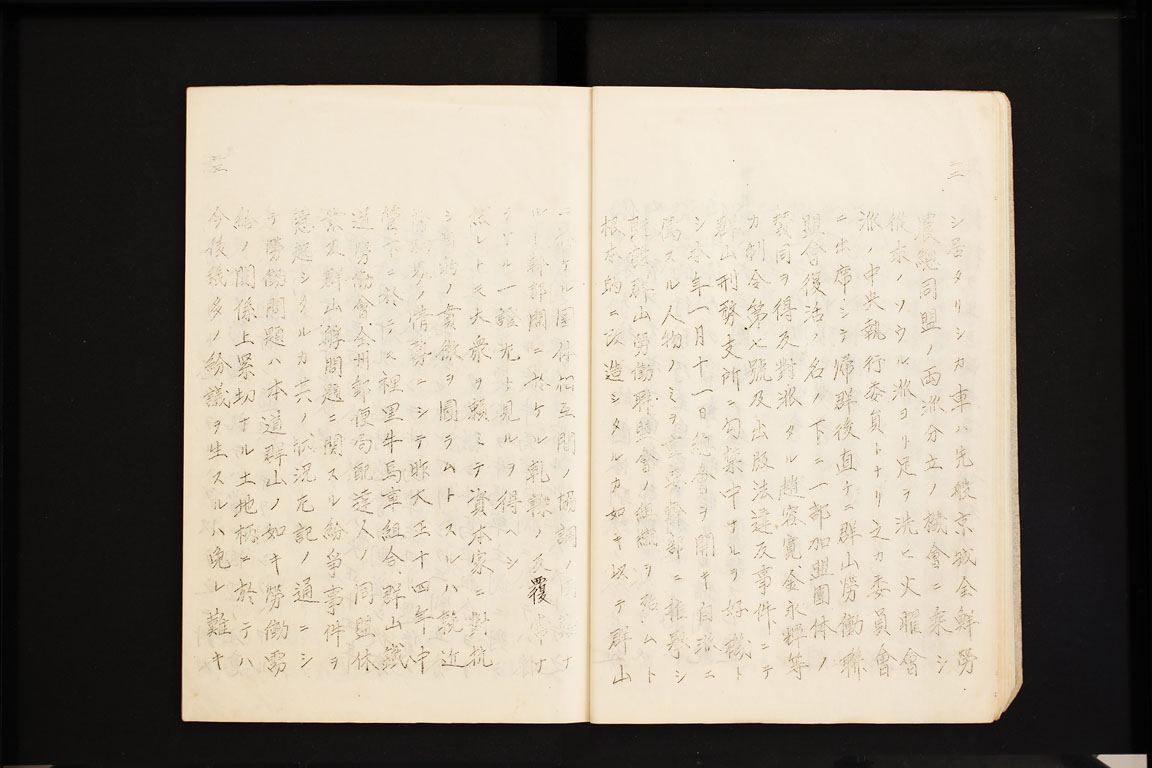 二
シ居タリシカ車ハ先般京城全鮮勞
農總同盟ノ両派分立ノ機會ニ乘シ
從来ノソウル派ヨリ足ヲ洗ヒ火曜會
派ノ中央執行委員トナリ之カ委員會
ニ出席シテ帰群後直チニ群山勞働聯
盟會復活ノ名ノ下ニ一部加盟團体ノ
賛同ヲ得反對派タル趙容寛金永輝等
カ制令第七號及出版法違反事件ニテ
群山刑務支所ニ勾禁中ナルヲ好機ト
シ本年一月十一日總會ヲ開キ自派ニ
属スル人物ノミヲ主要幹部ニ推擧シ
群山勞働聯盟會ノ組織ヲ ムト
根本的ニ改造シタルカ如キ以テ群山
ニ於ケル團体相互間ノ協調ノ ナ
ルト幹部間ニ於ケル軋轢ノ反覆 ナ
ル一證左ト見ルヲ得ヘシ
然レトモ大衆ヲ頼ミテ資本家ニ對抗
シ 的ノ貫徹ヲ圖ラムトスルハ最近
ノ情勢ニシテ昨大正十四年中
管下ニ於テモ裡里牛馬車組合、群山鐵
道勞働會、全州郵便局配達人ノ同盟休
業及群山 問題ニ関スル紛争事件ヲ
惹起シタルカ其ノ状況左記ノ通ニシ
テ勞働問題ハ本道群山ノ如キ勞働需
給ノ関係上緊切ナル土地柄ニ於テハ
今後幾多ノ紛議ヲ生スルハ免レ難キ